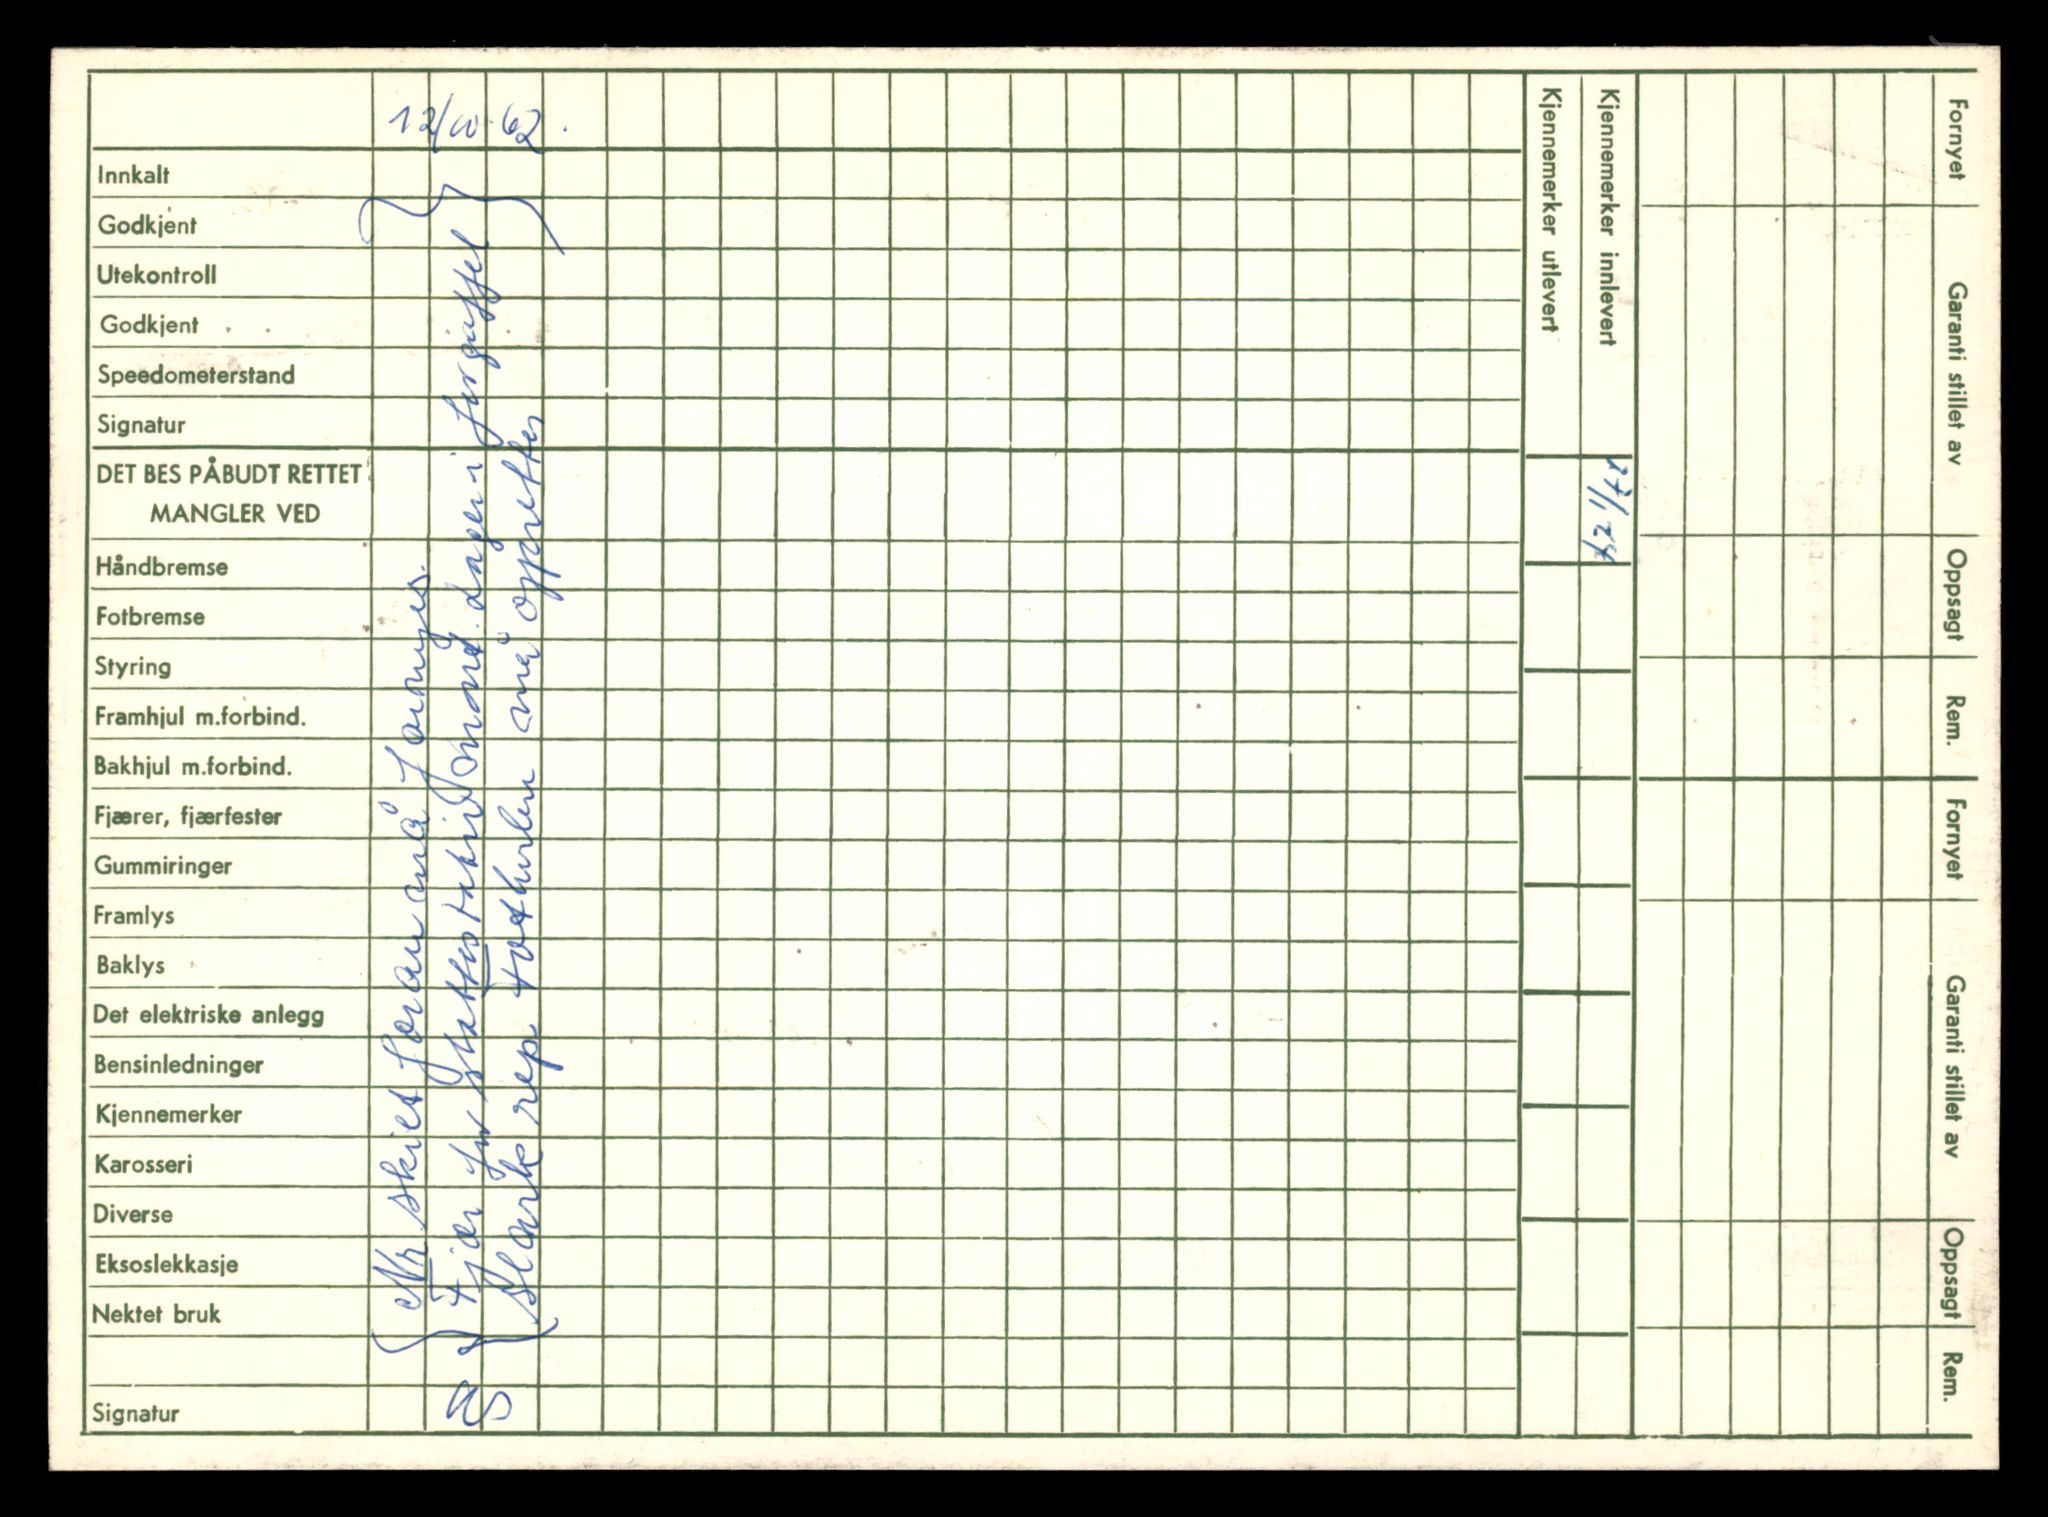 12/10-62.
Innkalt
Godkjent
Utekontroll
Godkjent
Speedometerstand
Signatur
DET BES PÅBUDT RETTET
MANGLER VED
Håndbremse
Fotbremse
Styring
Framhjul m.forbind.
Bakhjul m.forbind.
Fjærer, fjærfester
Gummiringer
Framlys
Baklys
Det elektriske anlegg
Bensinledninger
Kjennemerker
Karosseri
Diverse
Eksoslekkasje
Nektet bruk
Signatur
Nr skilt foran må fornyes.
Fjær for i
slark rep. må opprettes
Kjennemerker utlevert
Kjennemerker innlevert
Fornyet
Garanti stillet av
Oppsagt
Rem.
Fornyet
Garanti stillet av
Oppsagt
Rem.